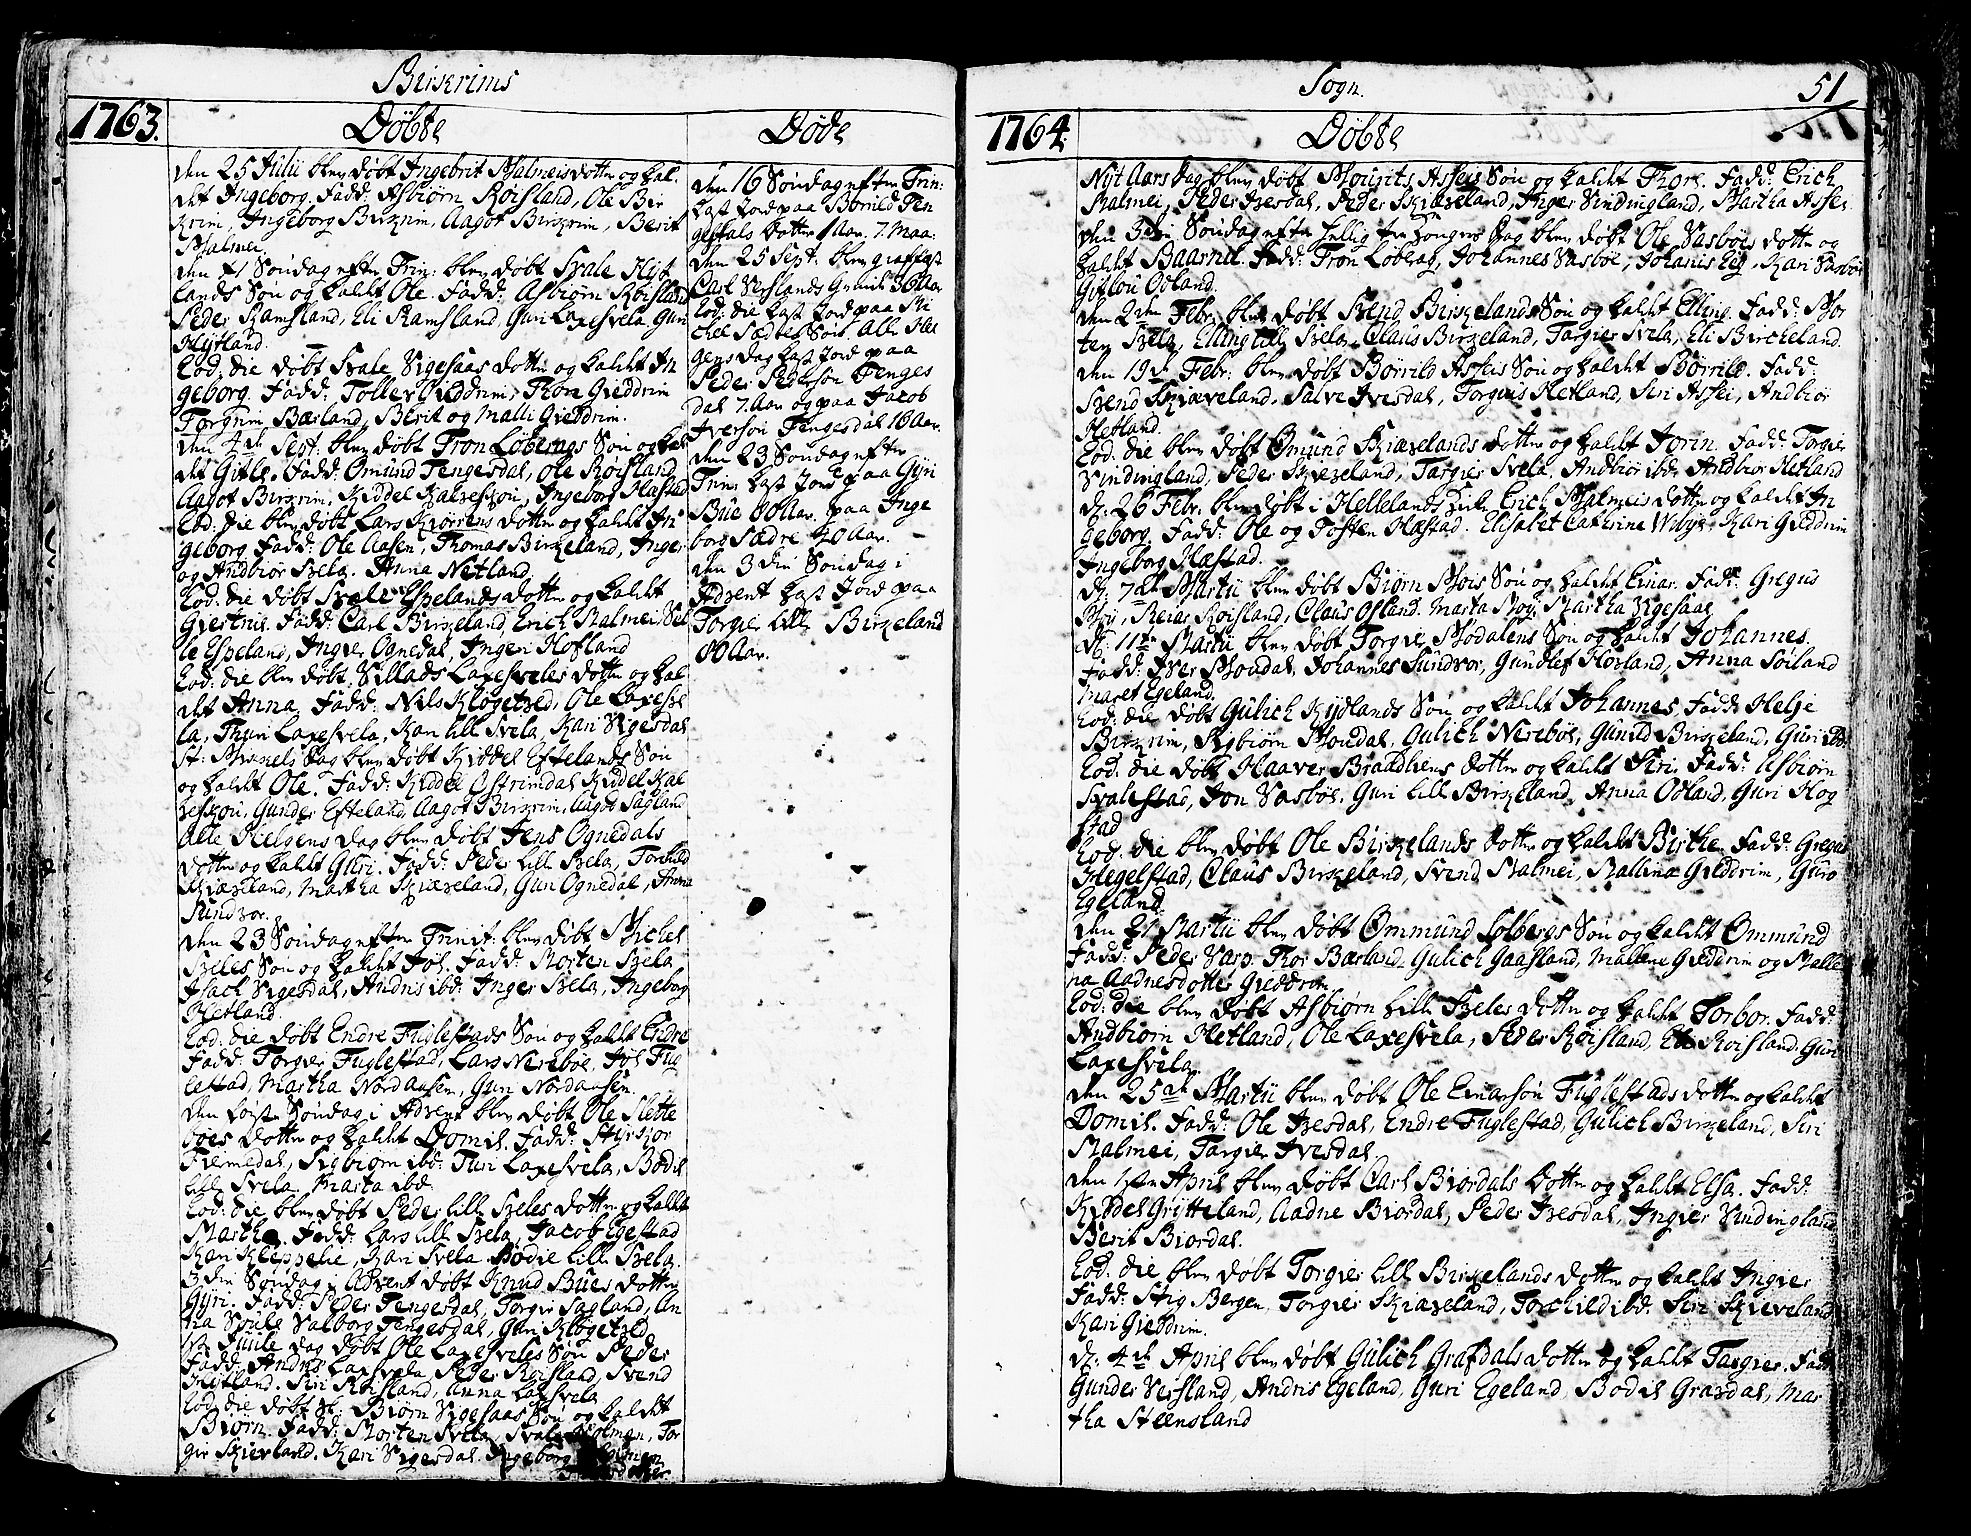 Birkrims
1763.
Døbte
den 25 Julii blev døbt Ingebrit Malmeis dotter og kal-
det Ingeborg. Fadd: Asbiørn Røisland, Ole Bir
krim, Ingeborg Birkrim, Aagot Birkrim, Berit
Malmei.
Søndag efter Trin: blev døbt Svale
lands Søn og kaldt Ole. Fadd: Asbiørn Røisland
Peder Ramsland, Eli Ramsland, Guri Laxesvela, Guri
Eod: die døbt Svale Vigesaas dotter og kaldt In
geborg. Fadd: Tolle Gieddrim, Thore Gieddrim
Torgrim Bærland, Berit og Malli Gieddrim.
den 4de Sept: blev døbt Tron Løbergs Søn og kal
det Gitle. Fadd: Omund Tengesdal, Ole Røisland
Aagot Birkrim, Kiddel Ingeborg Hæstad
Eod: die blev døbt Lars dotter og kaldt In
geborg. Fadd: Ole Aasen, Thomas Birkeland, Inger
og Andbiør Svela. Anna Netland
Eod: die døbt Svale Espelands dotter og kaldt
Fadd: Carl Birkeland, Erich Malmei, Sal
le Espeland, Ingier Ognedal, Inger Hofland
Eod: die blev døbt Villads Laxesveles dotter og kal
det Anna. Fadd: Nils Kløgetved, Ole Laxesve
la, Thuri Laxesvela, Kari lille Svela, Kari Vigesdal
St: Michels Dag blev døbt Kiddel Eftelands Søn
og kaldt Ole. Fadd: Kiddel Ostrimdal Kiddel
Gunder Efteland, Aagot Birkrim, Aagot Sagland
Alle Helgens dag blev døbt Jens Ognedals
dotter og kaldt Guri. Fadd: Peder lille Svela, Torchild
Skiæveland, Martha Skiæveland, Guri Ognedal, Anna
Sundvor.
den 23 Søndag efter Trinit: blev døbt Michel
Sveles Søn og kaldt Joh. Fadd: Morten Svela
Isach Vigesdal, Andris ibd: Inger Svela, Ingeborg
Hetland.
Eod: die døbt Endre Fuglestads Søn og kaldt Endre
Fadd: Torgier Fuglestad, Lars Nereböe, Joh Fug
lestad, Martha Nordausen, Guri Nordausen.
den første Søndag i Advent blev døbt Ole Slette
böes dotter og kaldt Domil. Fadd:
Sigbiørn ibd: Turi Laxesvela, Bodil
lille Svela. Marta ibd:
Eod: die blev døbt Peder lille Sveles dotter og kaldt
Martha. Fadd: Lars lille Svela, Jacob Egestad
Kari Kleppelie, Kari Svela Bodil lille Svela.
3 die Søndag i Advent døbt Knud Bues dotter
Gyri. Fadd: Peder Tengesdal, Torgier Sagland, An
na Valborg Tengesdal, Guri Kløgetved
Juule dag døbt Ole Laxesveles Søn Peder
Fadd: Andris Laxesvela, Peder Røisland, Svend
Hetland. Siri Røisland, Anna Laxesvela
Eod: die døbt Biørn Vigesaas Søn og kaldt
Biørn. Fadd: Morten Svela, Svale Holmen, Tor
gier Skieveland. Kari Vigesdal. Ingeborg Holmen
Døde
den 16 Søndag efter Trin:
kast Jord paa Børild Ten
gesdals dotter 1 Aar. 7. Maa:
den 25 Sept. blev graffæst
Carl Vesslands Qvinde 36 Aar
Eod: die kast Jord paa Mi
chel Sædres Søn. Alle Hel
gens dag kast Jord paa
Peder Pedersøn Tenges
dal 7. Aar og paa Jacob
Iversøn Tengesdal 16 Aar.
den 23 Søndag efter
Trin: kast Jord paa Gyri
Bue 80 Aar. paa Inge
borg Sædre 40 Aar.
den 3 die Søndag i
Advent kast Jord paa
Torgier lille Birkeland
80 Aar.
Sogn.
51
1764.
Døbte
Nyt Aars dag blev døbt Mourits Asseis Søn og kaldt Thore. Fadd: Erich
Malmei, Peder Ivesdal, Peder Skiæveland, Inger Vindingland, Martha Assei
den 3die Søndag efter Hellig tre Kongers Dag blev døbt Ole Vasböes dotter og
kaldt Baarnil. Fadd: Tron Løberg, Johannes Vasböe, Johanis Eig, Kari Vasböe
Gitlou Odland.
den 2den Febr. blev døbt Svend Birkelands Søn og kaldt Elling. Fadd: Mor
ten Svela, Elling lille Svela, Claus Birkeland, Targier Svela, Eli Bircheland.
den 19de Febr: blev døbt Børrild Asseis Søn og kaldt Børrild. Fadd:
Svend Skiæveland. Salve Ivesdal, Torgiuls Hetland, Siri Assei, Andbiør
Hetland.
Eod: die blev døbt Omund Skiævelands dotter og kaldt Jorin. Fadd: Torgier
Vindingland, Peder Skiæveland, Targier Svela. Andbiør ibd: Andbiør Hetland
d: 26 Febr. blev døbt i Hellelands Kirke Erich Malmeis dotter og kaldt In
geborg. Fadd: Ole og Tosten Hæstad. Elisabet Catherina Wibye, Kari Gieddrim
Ingeborg Hæstad.
d: 7de Martii blev døbt Biørn Mois Søn og kaldt Einar. Fadd: Gregus
Moy, Reias Røisland, Claus Osland. Marta Moy, Martha Vigesaas
d: 11te Martii blev døbt Torgier Modalens Søn og kaldt Johannes.
Fadd: Iver Moudal, Johannes Sundvor, Gundlef Horland, Anna Søiland
Maret Egeland.
Eod: die døbt Gulich Kydlands Søn og kaldt Johannes. Fadd: Helje
Birkrim, Sigbiørn Moudal, Gulich Nereböe, Gunild Birkeland, Guri ibd:
Eod: die døbt Haaver Braadliens dotter og kaldt Siri. Fadd: Asbiørn
Svalestad, Jon Vasböe. Guri lille Birkeland. Anna Odland, Guri Hog
stad
Eod: die blev døbt Ole Birkelands dotter og kaldt Birthe. Fadd: Gregus
Hegelstad, Claus Birkeland, Svend Malmei, Mallinæ Gieddrim, Guro
Egeland.
den 21 Martii blev døbt Ommund Solbergs Søn og kaldt Ommund
Fadd: Peder Varp. Thor Bærland, Gulich Gaasland, Mallene Gieddrim og Malle
na Aadnesdotter Gieddrem
Eod: die blev døbt Asbiørn lille Sveles dotter og kaldt Torbor. Fadd:
Andbiørn Hetland, Ole Laxesvela, Peder Røisland, Eli Røisland. Guri
Laxesvela.
den 25de Martii blev døbt Ole Einarsøn Fuglestads dotter og kaldt
Domil. Fadd: Ole Ivesdal, Endre Fuglestad, Gulich Birkeland, Siri
Malmei, Targier Ivesdal.
den 1ste April blev døbt Carl Biordals dotter og kaldt Elsa. Fadd:
Kiddel Grytteland, Aadne Biordal, Peder Ivesdal, Ingier Vindingland
Berit Biordal.
Eod: die blev døbt Torgier lille Birkelands dotter og kaldt Ingier
Fadd: Stig Bergen, Torgier Skiæveland, Torchild ibd: Siri Skieveland
Kari Gieddrim.
d: 4de April blev døbt Gulich Grafdals dotter og kaldt Targier. Fadd:
Gunder Vesland, Andris Egeland, Guri Egeland, Bodil Gravdal, Mar
tha Steensland